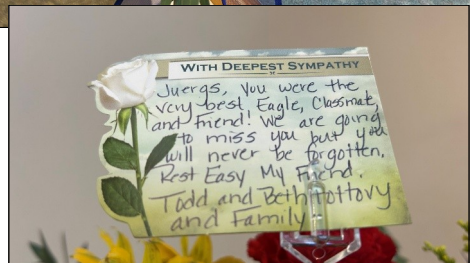 WITH DEEPEST SYMPATHY
Juergs, You were the
very best, Eagle, Classmate,
and friend! We are going
to miss you but you
will never be forgotten.
Rest Easy My Friend.
Todd and Beth Tottory
and Family